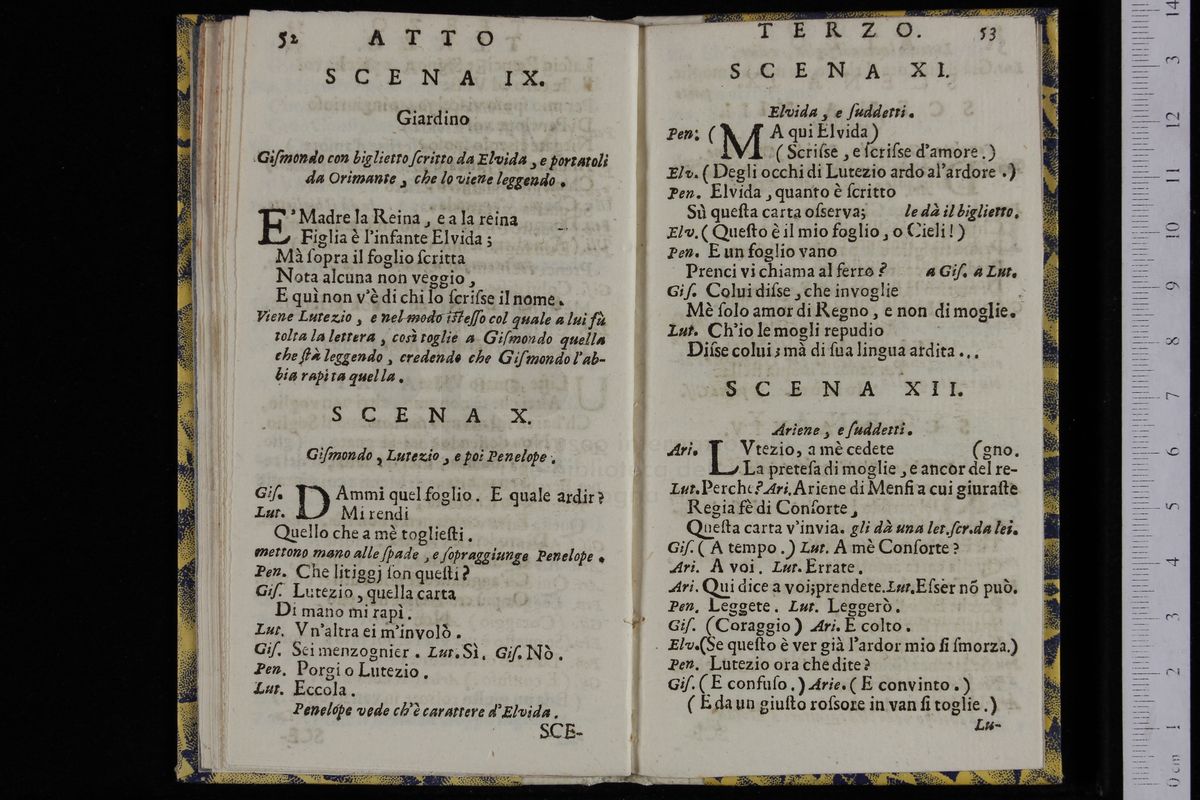 52 ATTO
SCENA IX.
Giardino
Giſmondo con biglietto ſcritto da Elvida, e portatoli
da Orimante, che lo viene leggendo.
E' Madre la Reina, e a la reina
Figlia è l'infante Elvida;
Mà ſopra il foglio ſcritta
Nota alcuna non veggio,
E quì non v'è di chi lo ſcriſse il nome.
Viene Lutezio, e nel modo iſteſſo col quale a lui fù
tolta la lettera, così toglie a Giſmondo quella
che ſtà leggendo, credendo che Giſmondo l'ab-
bia rapita quella.
SCENA X.
Giſmondo, Lutezio, e poi Penelope.
Giſ. DAmmi quel foglio. E quale ardir?
Lut. Mi rendi
Quello che a mè toglieſti.
mettono mano alle ſpade, e ſopraggiunge Penelope.
Pen. Che litiggj ſon queſti?
Giſ. Lutezio, quella carta
Di mano mi rapì.
Lut. Vn'altra ei m'involò.
Giſ. Sei menzognier. Lut. Sì. Giſ. Nò.
Pen. Porgi o Lutezio.
Lut. Eccola.
Penelope vede ch'è carattere d'Elvida.
SCE-
TERZO. 53
SCENA XI.
Elvida, e ſuddetti.
Pen: (MA qui Elvida)
(Scriſse, e ſcriſse d'amore.)
Elv. (Degli occhi di Lutezio ardo al'ardore.)
Pen. Elvida, quanto è ſcritto
Sù queſta carta oſserva; le dà il biglietto.
Elv. (Queſto è il mio foglio, o Cieli!)
Pen. E un foglio vano
Prenci vi chiama al ferro? a Giſ. a Lut.
Giſ. Colui diſse, che invoglie
Mè ſolo amor di Regno, e non di moglie.
Lut. Ch'io le mogli repudio
Diſse colui; mà di ſua lingua ardita...
SCENA XII.
Ariene, e ſuddetti.
Ari. LVtezio, a mè cedete (gno.
La preteſa di moglie, e ancor del re-
Lut. Perche? Ari. Ariene di Menfi a cui giuraſte
Regia fè di Conſorte,
Queſta carta v'invia. gli dà una let. ſcr. da lei.
Giſ. (A tempo.) Lut. A mè Conſorte?
Ari. A voi. Lut. Errate.
Ari. Qui dice a voi; prendete. Lut. Eſser nõ può.
Pen. Leggete. Lut. Leggerò.
Giſ. (Coraggio) Ari. E colto.
Elv. (Se queſto è ver già l'ardor mio ſi ſmorza.)
Pen. Lutezio ora che dite?
Giſ. (E confuſo.) Arie. (E convinto.)
(E da un giuſto roſsore in van ſi toglie.)
Lu-
0 cm 1 2 3 4 5 6 7 8 9 10 11 12 3 14